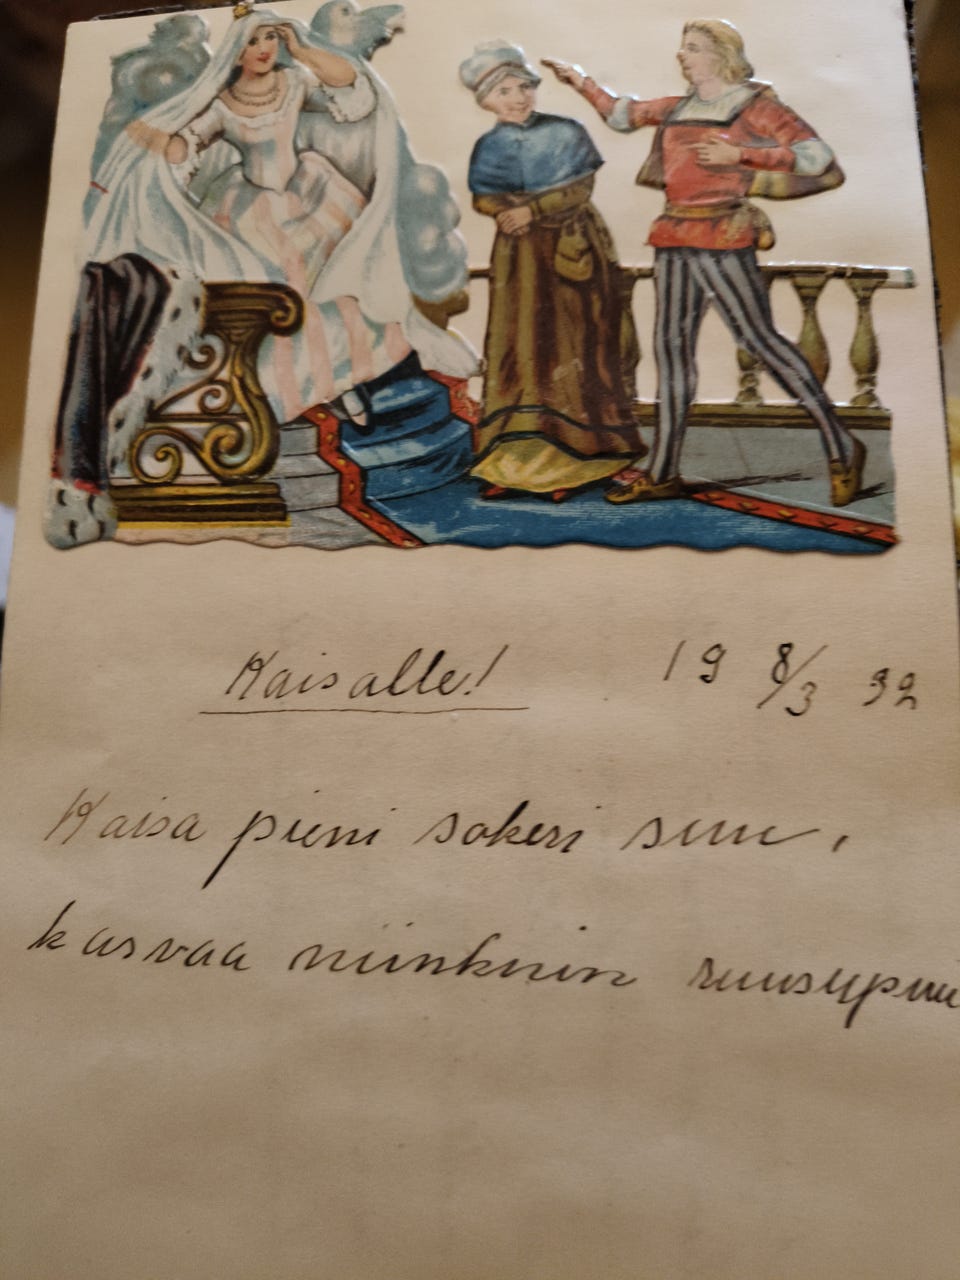 Kaisalle! 19 8/3 32
Kaisa pieni sokeri suu,
kasvaa niinkuin ruusupuu